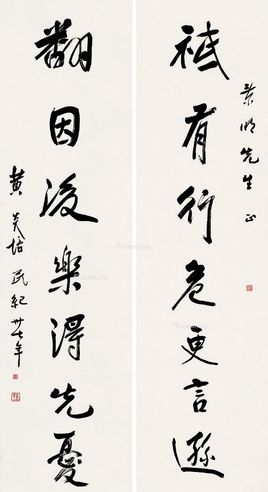 景明先生正
祇有行危更言遜
翻因後樂得先憂
黃炎培 民紀卅七年